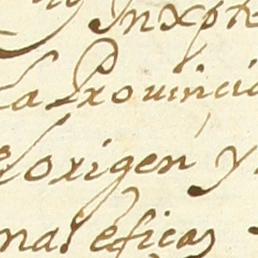 Inxpte
la Provincia
el origen y
mas eficaz